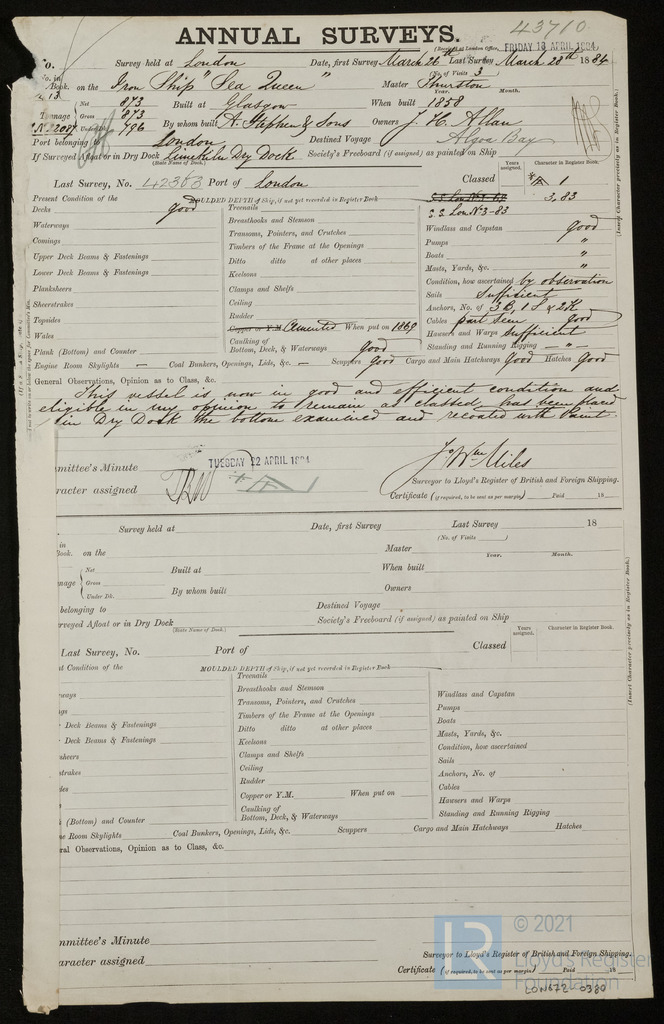 43710
ANNUAL SURVEYS.
(Received at London Office, FRIDAY 18 APRIL 1884,
No. Survey held at London Date, first Survey March 26th Last Survey March 28th 1884
(No. of Visits 3)
No. in
Book. on the Iron Ship "Sea Queen" Master Thurston
Year. Month.
Net 873 Built at Glasgow When built 1858
Tonnage Gross 873
796 By whom built A. Stephen & Sons Owners J. H. Allan
Port belonging to London Destined Voyage Algoa Bay
If Surveyed Afloat or in Dry Dock Limekiln Dry Dock Society's Freeboard (if assigned) as painted on Ship
(State Name of Dock.)
Years assigned. Character in Register Book.
Last Survey, No. 42363 Port of London Classed *A 1
3,83
S.S. Lon. No 3-83
Present Condition of the MOULDED DEPTH of Ship, if not yet recorded in Register Book
Decks good Treenails
Waterways Breasthooks and Stemson Windlass and Capstan good
Comings Transoms, Pointers, and Crutches Pumps "
Upper Deck Beams & Fastenings Timbers of the Frame at the Openings Boats "
Lower Deck Beams & Fastenings Ditto ditto at other places Masts, Yards, &c. "
Planksheers Keelsons Condition, how ascertained by observation
Sheerstrakes Clamps and Shelfs Sails Sufficient
Topsides Ceiling Anchors, No. of 3B, 1S & 2K
Wales Rudder Cables part seen Good
Copper or Y.M. Cemented When put on 1869 Hausers and Warps Sufficient
Plank (Bottom) and Counter Caulking of Bottom, Deck, & Waterways good Standing and Running Rigging - " -
Engine Room Skylights — Coal Bunkers, Openings, Lids, &c. — Scuppers good Cargo and Main Hatchways Good Hatches Good
General Observations, Opinion as to Class, &c.
This vessel is now in good and efficient condition and
eligible in my opinion to remain as classed, has been placed
in Dry Dock the bottom examined and recoated with Paint.
(Insert Character precisely as in Register Book.)
mmittee's Minute TUESDAY 22 APRIL 1884
J. Wm Miles
racter assigned *A
Surveyor to Lloyd's Register of British and Foreign Shipping.
Certificate (if required, to be sent as per margin) Paid 18
Survey held at Date, first Survey Last Survey 18
(No. of Visits )
in
Book. on the Master
Year. Month.
Net Built at When built
nage Gross
Under Dk. By whom built Owners
belonging to Destined Voyage
rveyed Afloat or in Dry Dock Society's Freeboard (if assigned) as painted on Ship
(State Name of Dock.)
Years assigned. Character in Register Book.
Last Survey, No. Port of Classed
t Condition of the MOULDED DEPTH of Ship, if not yet recorded in Register Book
Treenails
ways Breasthooks and Stemson Windlass and Capstan
gs Transoms, Pointers, and Crutches Pumps
Deck Beams & Fastenings Timbers of the Frame at the Openings Boats
Deck Beams & Fastenings Ditto ditto at other places Masts, Yards, &c.
sheers Keelsons Condition, how ascertained
strakes Clamps and Shelfs Sails
des Ceiling Anchors, No. of
Rudder Cables
Copper or Y.M. When put on Hausers and Warps
(Bottom) and Counter Caulking of Bottom, Deck, & Waterways Standing and Running Rigging
ne Room Skylights Coal Bunkers, Openings, Lids, &c. Scuppers Cargo and Main Hatchways Hatches
ral Observations, Opinion as to Class, &c.
(Insert Character precisely as in Register Book.)
mmittee's Minute
aracter assigned
Surveyor to Lloyd's Register of British and Foreign Shipping.
Certificate (if required, to be sent as per margin) Paid 18
LR © 2021
Lloyd's Register
Foundation
LON672-0380